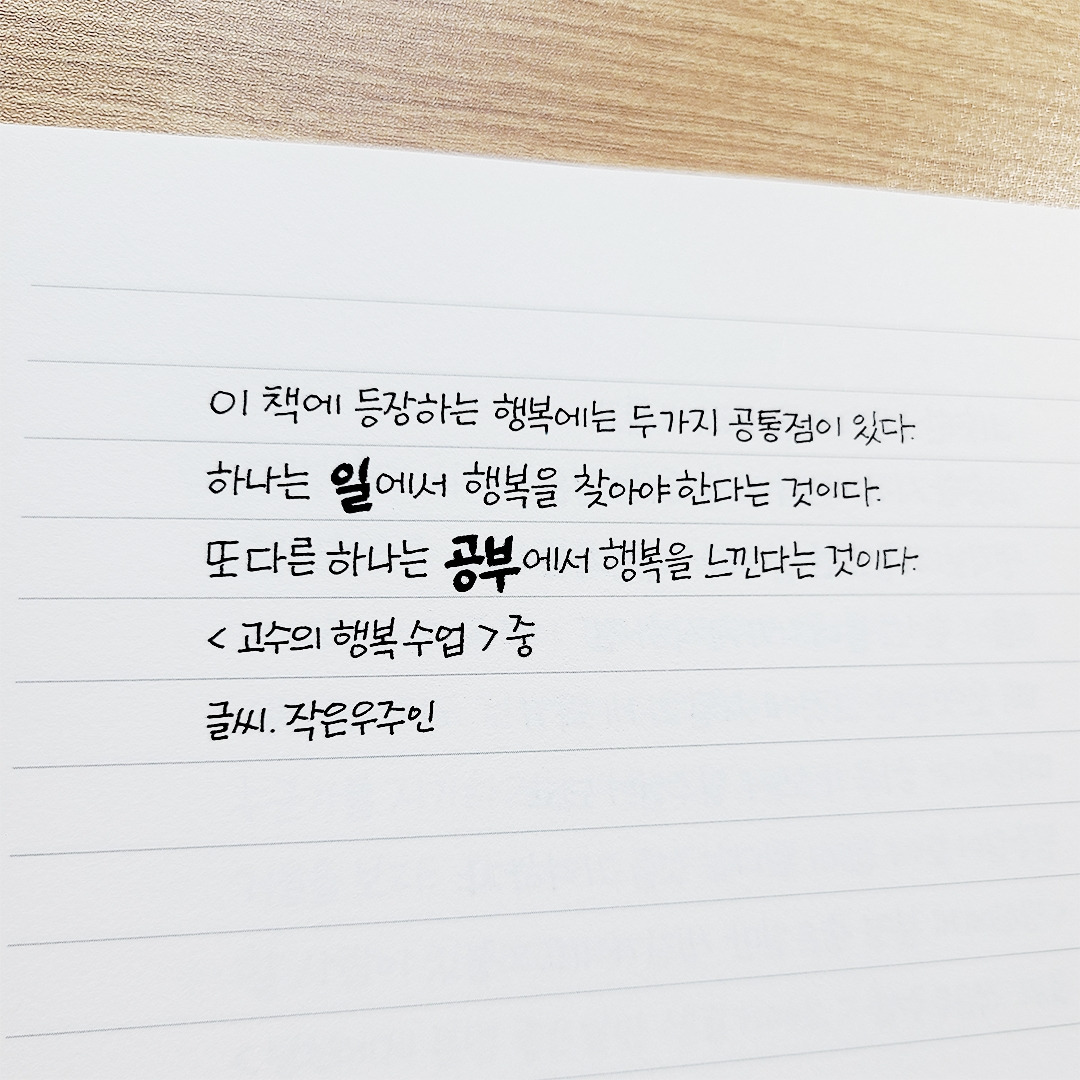 이 책에 등장하는 행복에는 두가지 공통점이 있다.
하나는 일에서 행복을 찾아야한다는 것이다.
또다른 하나는 공부에서 행복을 느낀다는 것이다.
<고수의 행복수업>중
글씨. 작은우주인